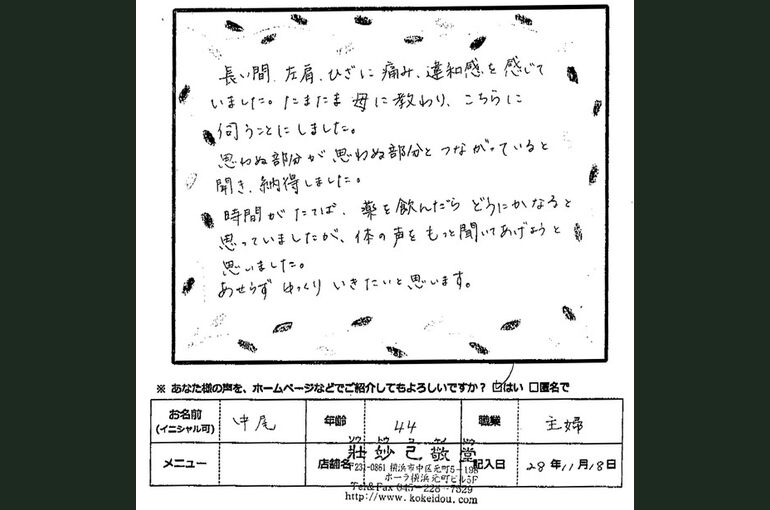 長い間、左肩、ひざに痛み、違和感を感じて
いました。たまたま母に教わり、こちらに
伺うことにしました。
思わぬ部分が思わぬ部分とつながっていると
聞き、納得しました。
時間がたてば、薬を飲んだらどうにかなると
思っていましたが、体の声をもっと聞いてあげようと
思いました。
あせらずゆっくりいきたいと思います。
※ あなた様の声を、ホームページなどでご紹介してもよろしいですか？ ☑はい □匿名で
お名前 (イニシャル可) 中尾 年齢 44 職業 主婦
メニュー 店舗名 記入日 28年11月18日
ソウ トウ コ ケイ ドウ
壯妙己敬堂
〒231-0861 横浜市中区元町5-198
ポーラ横浜元町ビル5F
Tel&Fax 045-228-7529
http://www.kokeidou.com